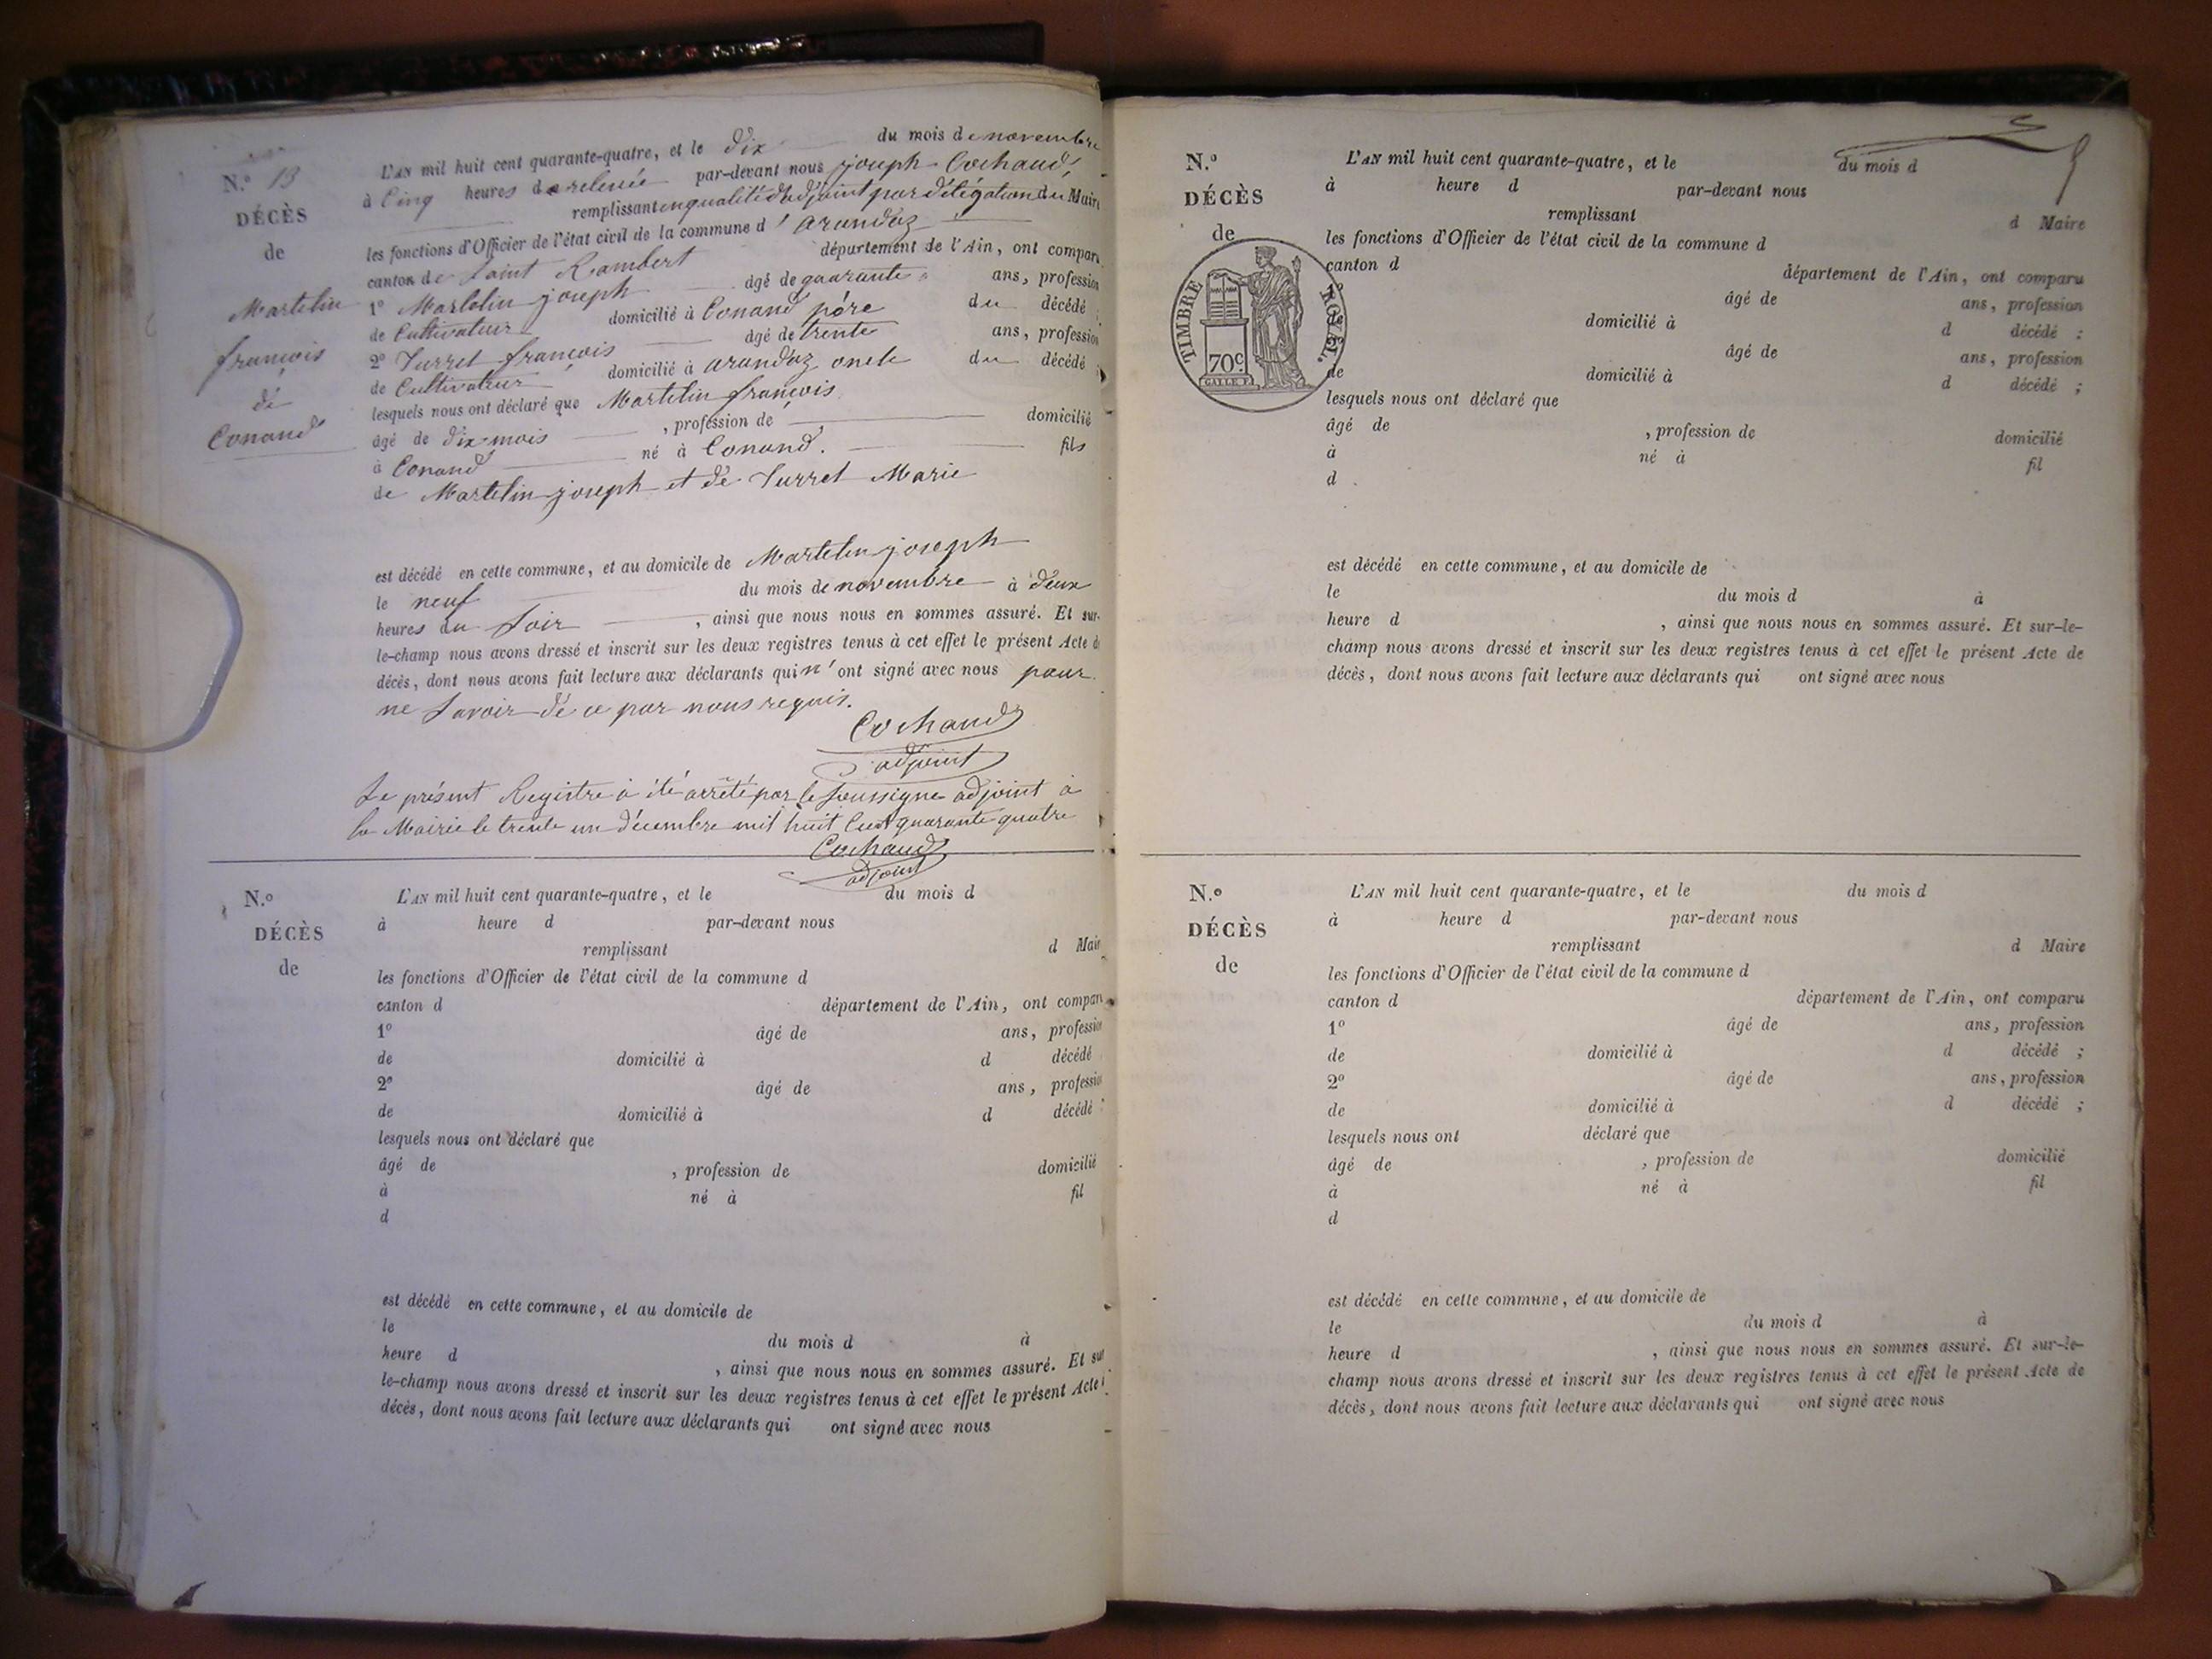 N.o 13
DÉCÈS
de
Martelin
françois
dé
Conand
L'AN mil huit cent quarante-quatre, et le dix du mois de novembre
à Cinq heures de relevée par-devant nous joseph Cochaud,
remplissant en qualité d'adjoint par délégation du Maire
les fonctions d'Officier de l'état civil de la commune d'arandaz
canton de Saint Rambert département de l'Ain, ont comparu
1o Martelin joseph âgé de quarante ans, profession
de Cultivateur domicilié à Conand pére du décédé ;
2o Turrel françois âgé de trente ans, profession
de Cultivateur domicilié à arandaz oncle du décédé ;
lesquels nous ont déclaré que Martelin françois
âgé de dix mois , profession de domicilié
à Conand né à Conand. fils
de Martelin joseph et de Turrel Marie
est décédé en cette commune, et au domicile de Martelin joseph
le neuf du mois de novembre à deux
heures du Soir , ainsi que nous nous en sommes assuré. Et sur-
le-champ nous avons dressé et inscrit sur les deux registres tenus à cet effet le présent Acte de
décès, dont nous avons fait lecture aux déclarants qui n'ont signé avec nous pour
ne Savoir dé ce par nous requis.
Cochaud
adjoint
Le présent Registre à été arrêté par le Soussigne adjoint à
la Mairie le trente un décembre mil huit Cent quarante quatre
Cochaud
adjoint
N.o
DÉCÈS
de
L'AN mil huit cent quarante-quatre, et le du mois d
à heure d par-devant nous
remplissant d Maire
les fonctions d'Officier de l'état civil de la commune d
canton d département de l'Ain, ont comparu
1o âgé de ans, profession
de domicilié à d décédé
2o âgé de ans, profession
de domicilié à d décédé
lesquels nous ont déclaré que
âgé de , profession de domicilié
à né à fil
d
est décédé en cette commune, et au domicile de
le du mois d à
heure d , ainsi que nous nous en sommes assuré. Et sur
le-champ nous avons dressé et inscrit sur les deux registres tenus à cet effet le présent Acte
décès, dont nous avons fait lecture aux déclarants qui ont signé avec nous
N.o
DÉCÈS
de
TIMBRE ROYAL.
70c
GALLE F.
L'AN mil huit cent quarante-quatre, et le du mois d
à heure d par-devant nous
remplissant d Maire
les fonctions d'Officier de l'état civil de la commune d
canton d département de l'Ain, ont comparu
âgé de ans, profession
de domicilié à d décédé ;
âgé de ans, profession
de domicilié à d décédé ;
lesquels nous ont déclaré que
âgé de , profession de domicilié
à né à fil
d
est décédé en cette commune, et au domicile de
le du mois d à
heure d , ainsi que nous nous en sommes assuré. Et sur-le-
champ nous avons dressé et inscrit sur les deux registres tenus à cet effet le présent Acte de
décès, dont nous avons fait lecture aux déclarants qui ont signé avec nous
N.o
DÉCÈS
de
L'AN mil huit cent quarante-quatre, et le du mois d
à heure d par-devant nous
remplissant d Maire
les fonctions d'Officier de l'état civil de la commune d
canton d département de l'Ain, ont comparu
1o âgé de ans, profession
de domicilié à d décédé ;
2o âgé de ans, profession
de domicilié à d décédé ;
lesquels nous ont déclaré que
âgé de , profession de domicilié
à né à fil
d
est décédé en cette commune, et au domicile de
le du mois d à
heure d , ainsi que nous nous en sommes assuré. Et sur-le-
champ nous avons dressé et inscrit sur les deux registres tenus à cet effet le présent Acte de
décès, dont nous avons fait lecture aux déclarants qui ont signé avec nous